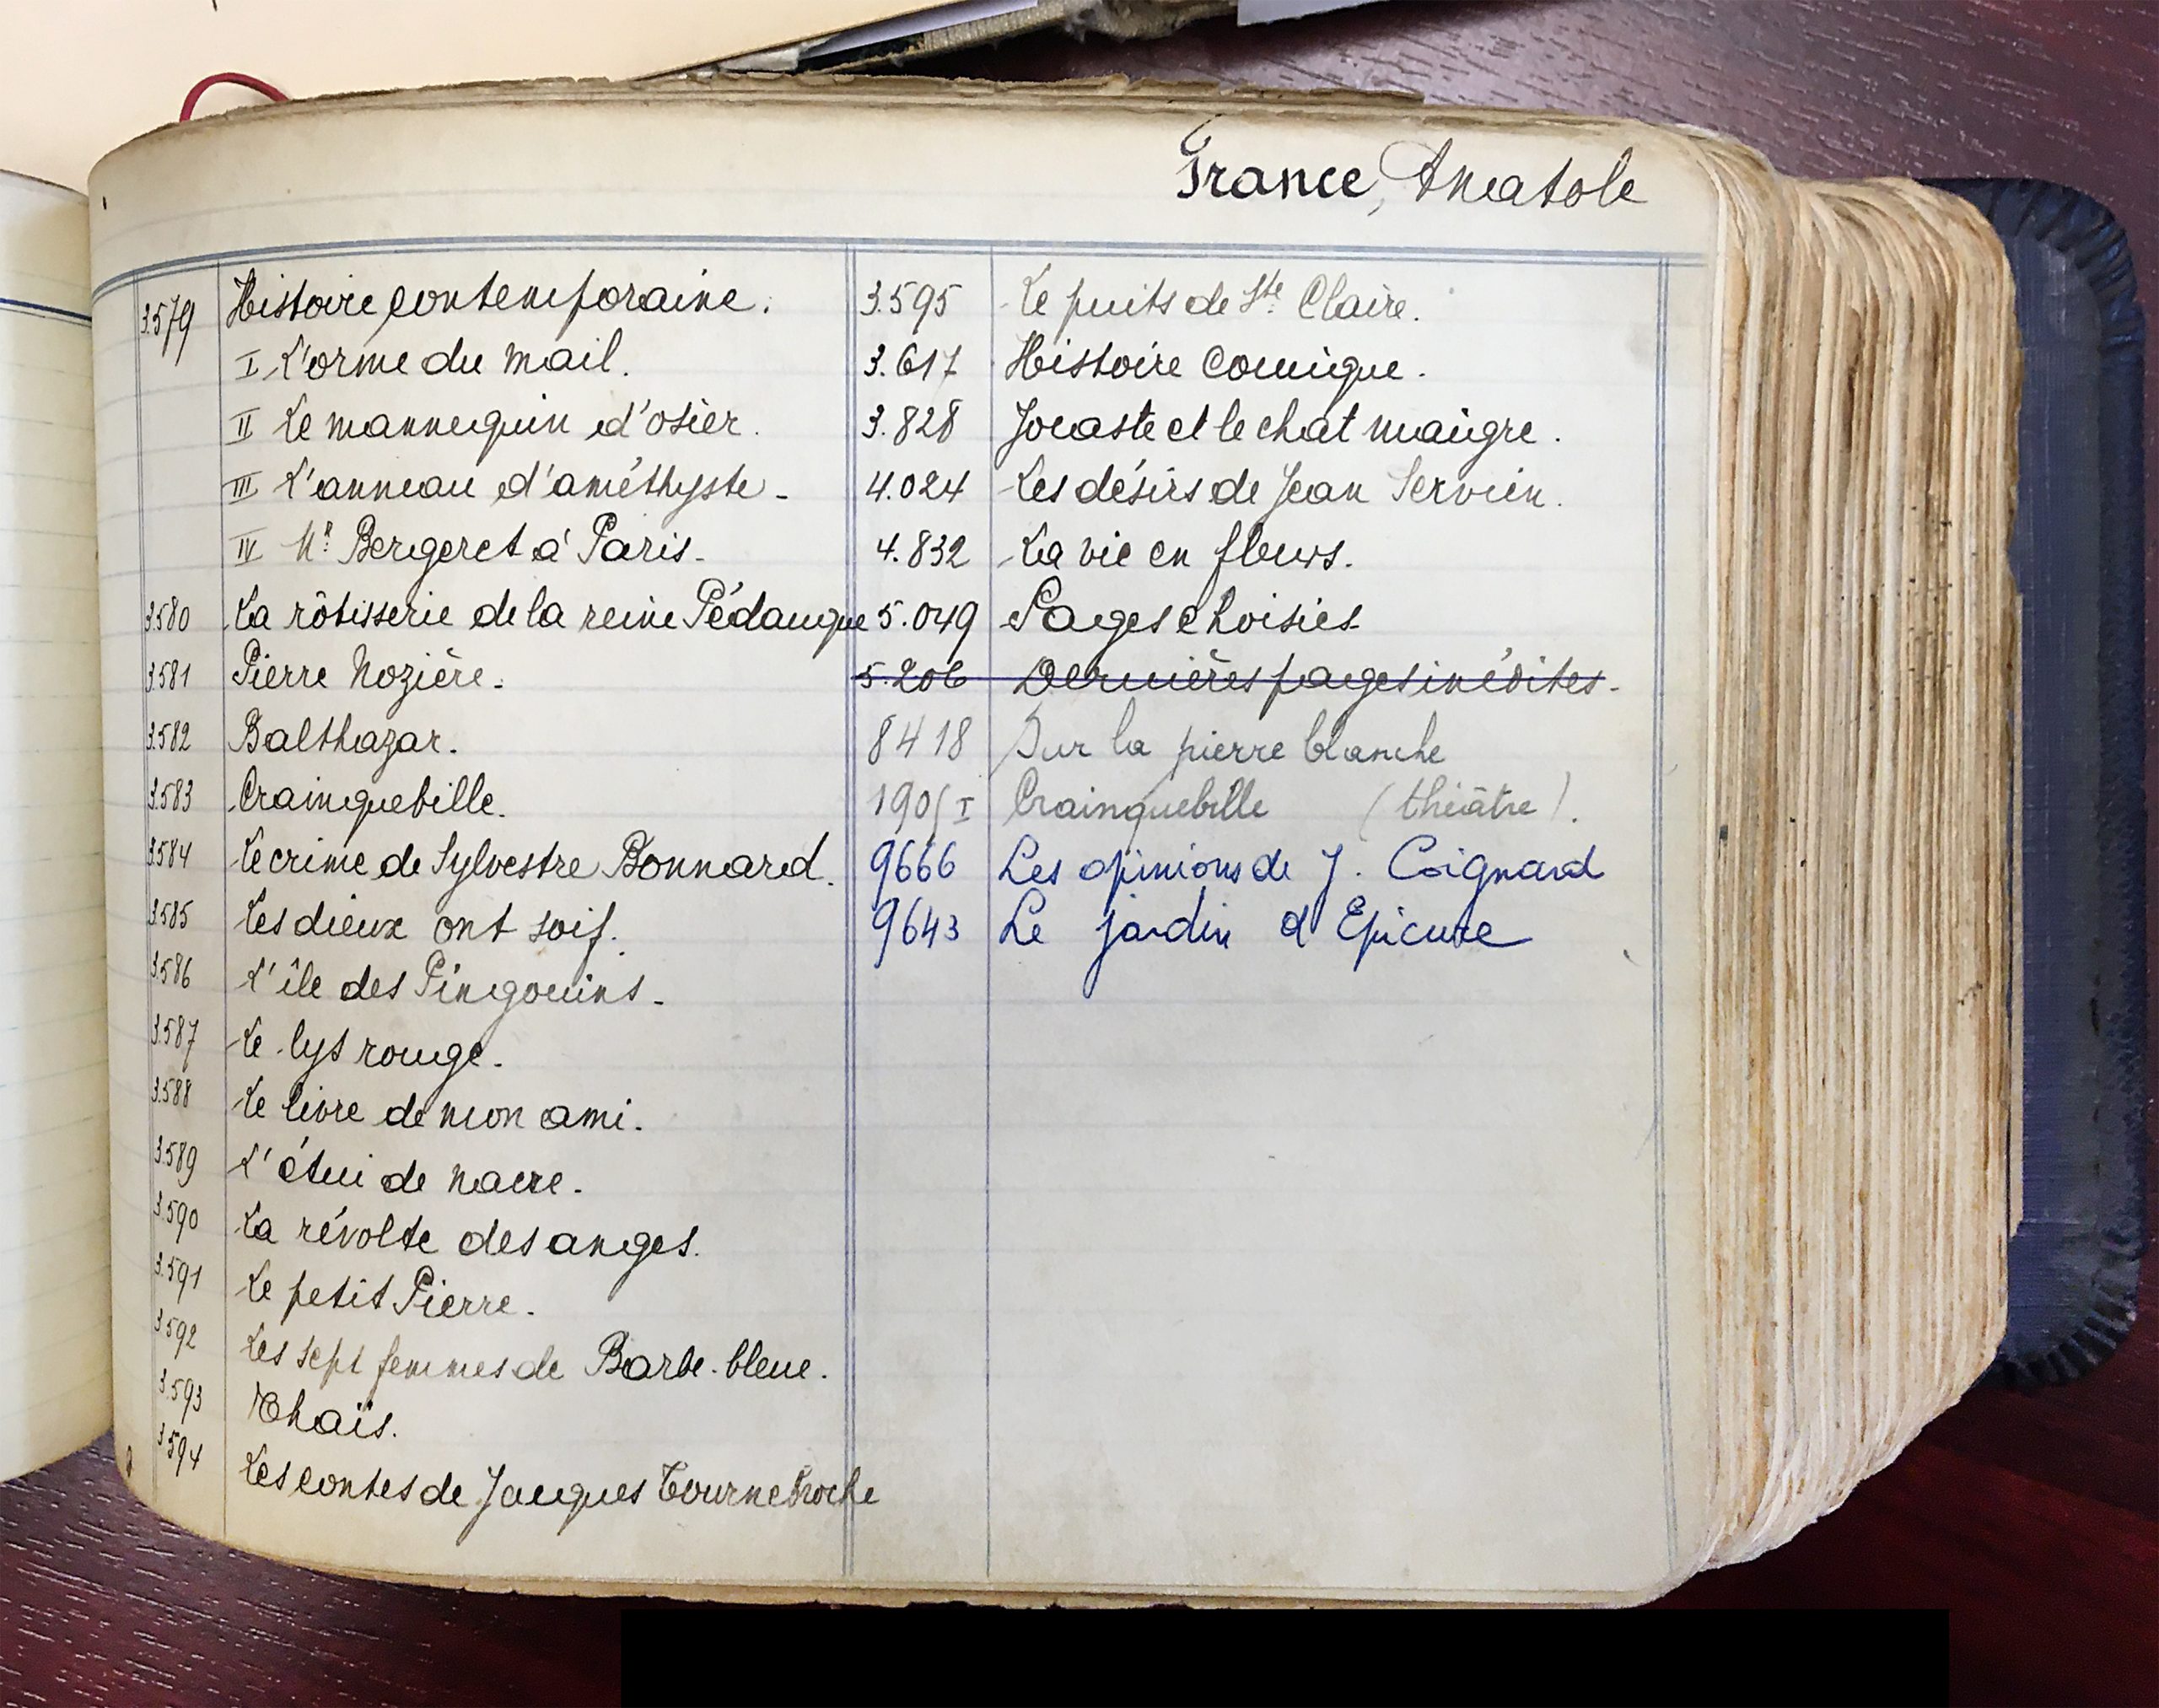 France, Anatole
3.579 Histoire contemporaine.
I L'orme du mail.
II Le mannequin d'osier.
III L'anneau d'améthyste -
IV Mr Bergeret à Paris -
3.580 La rôtisserie de la reine Pédauque
3.581 Pierre Nozière -
3.582 Balthazar.
3.583 Crainquebille.
3.584 Le crime de Sylvestre Bonnard.
3.585 Les dieux ont soif.
3.586 L'île des Pingouins -
3.587 Le lys rouge.
3.588 Le livre de mon ami.
3.589 L'étui de nacre.
3.590 La révolte des anges.
3.591 Le petit Pierre.
3.592 Les sept femmes de Barbe-bleue.
3.593 Thaïs.
3.594 Les contes de Jacques Tournebroche
3.595 Le puits de Ste Claire.
3.617 Histoire comique.
3.828 Jocaste et le chat maigre.
4.024 Les désirs de Jean Servien.
4.832 La vie en fleurs.
5.049 Pages choisies
5.206 Dernières pages inédites -
8418 Sur la pierre blanche
190/I Crainquebille (théâtre).
9666 Les opinions de J. Coignard
9643 Le jardin d'Epicure